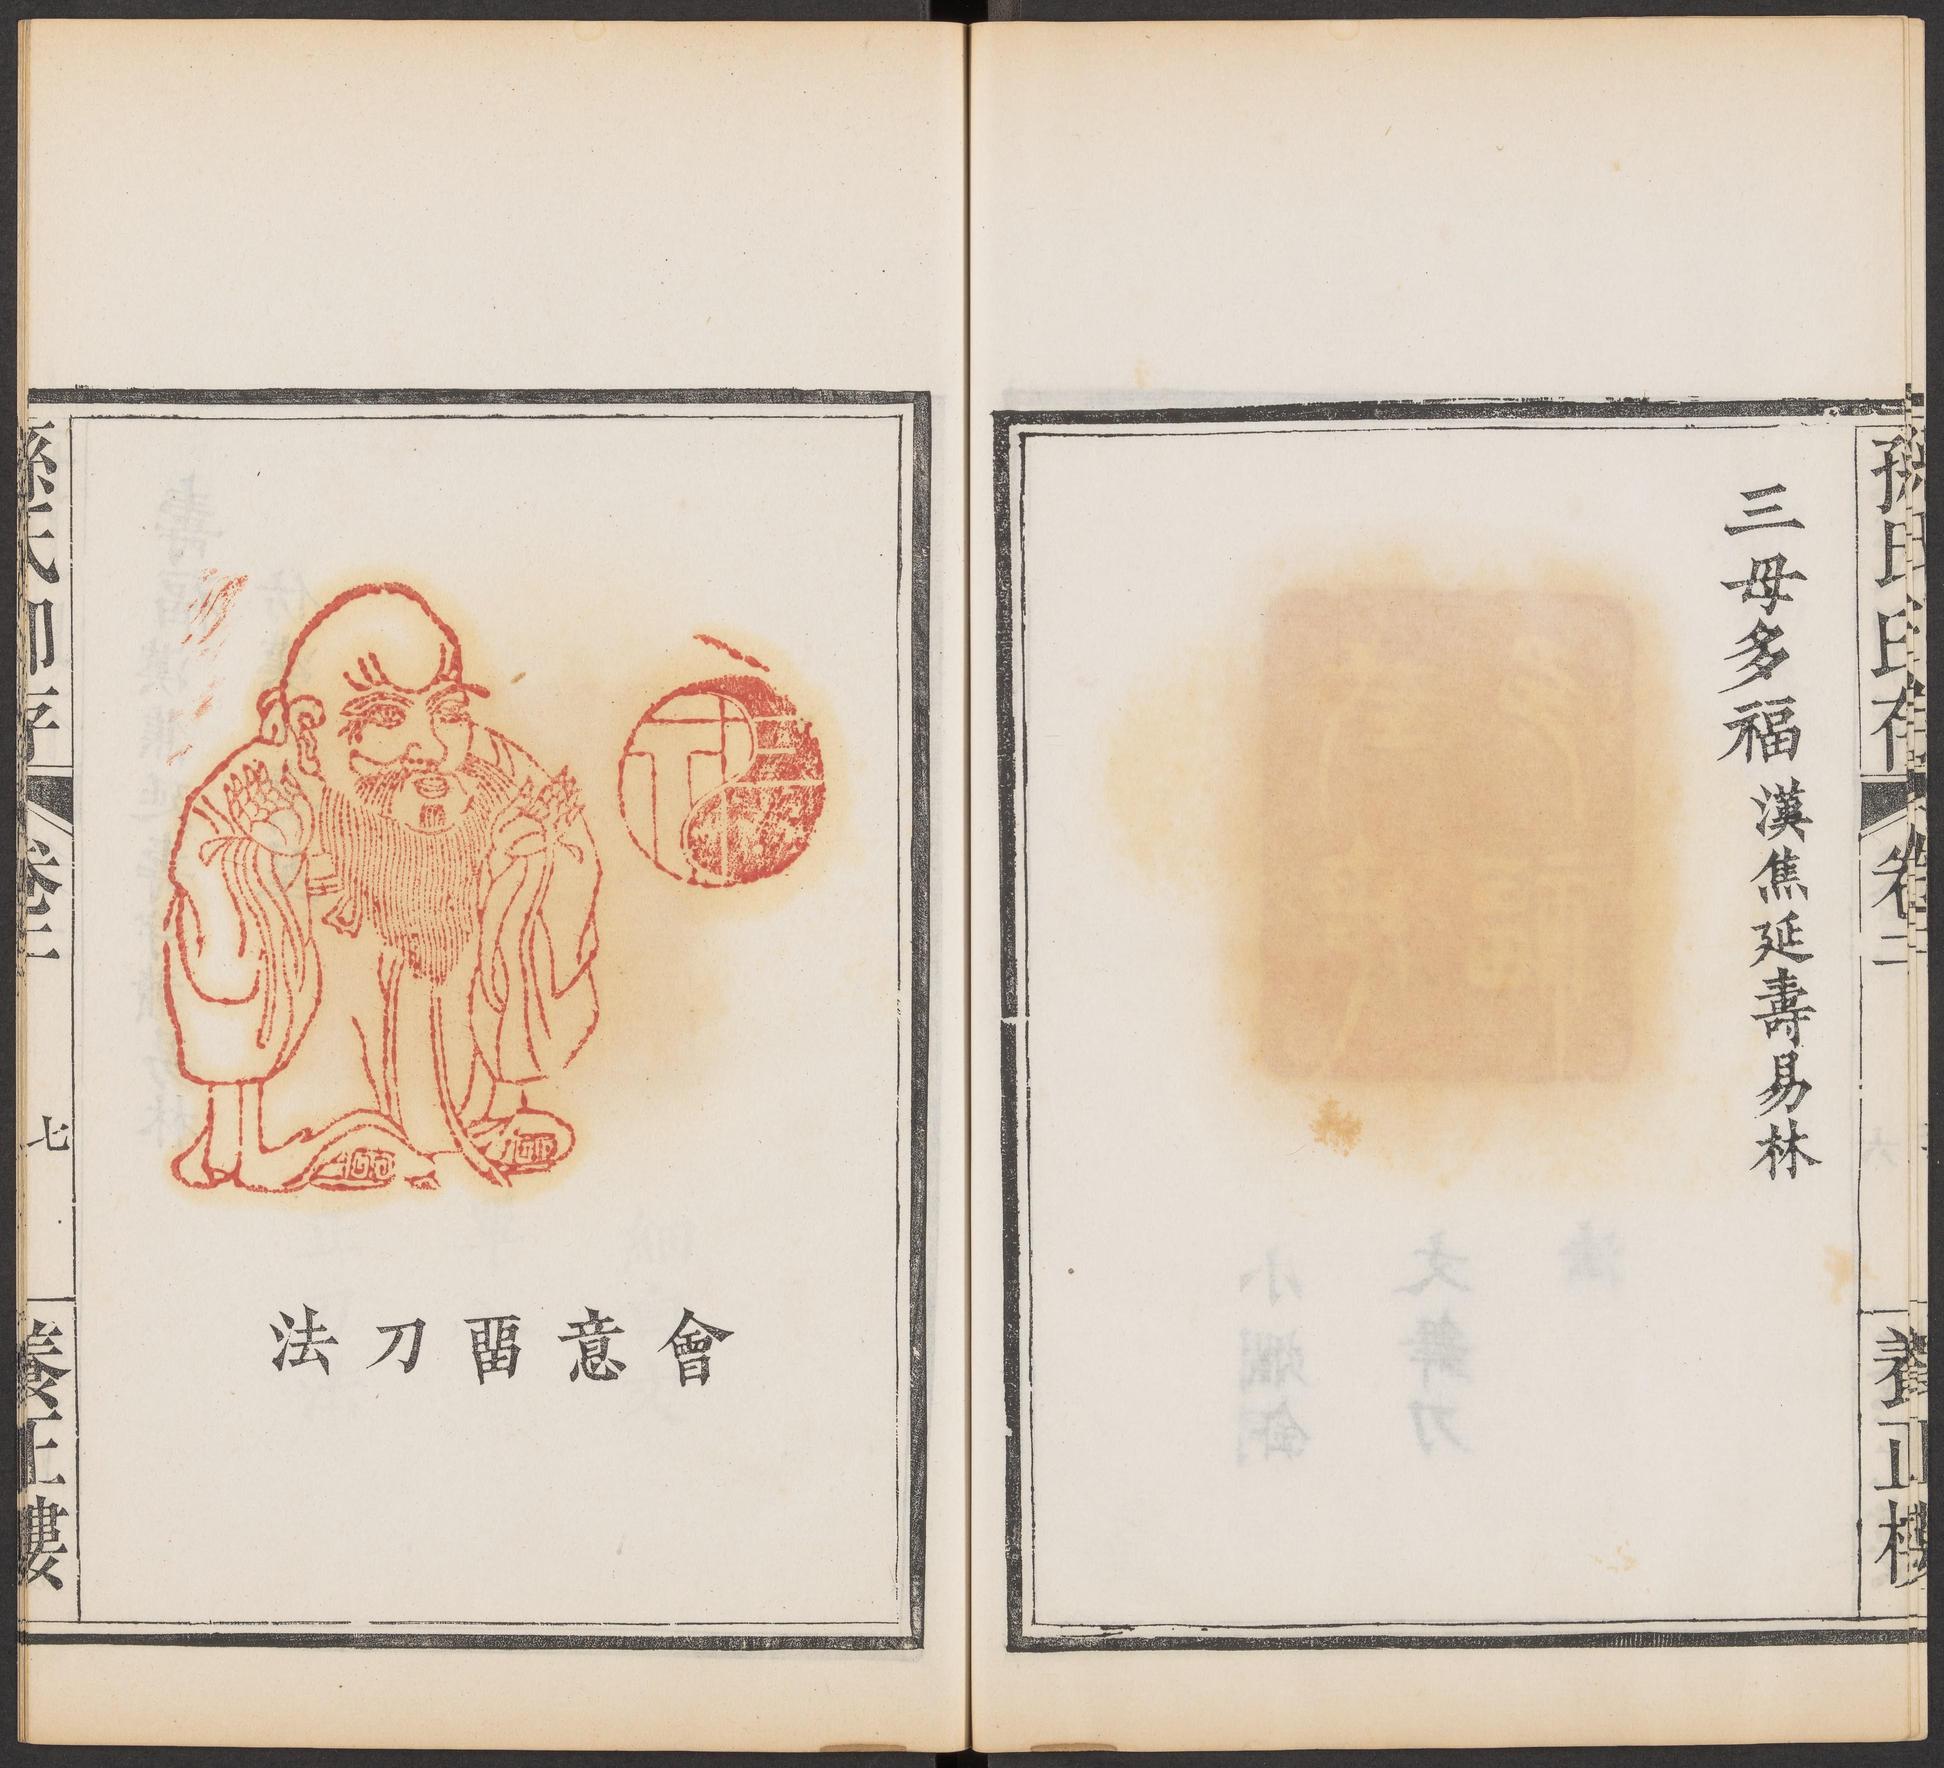 三母多福 漢焦延壽易林
孫氏印存 卷二
養正樓
會意畱刀法
孫氏印存 卷二
七
養正樓